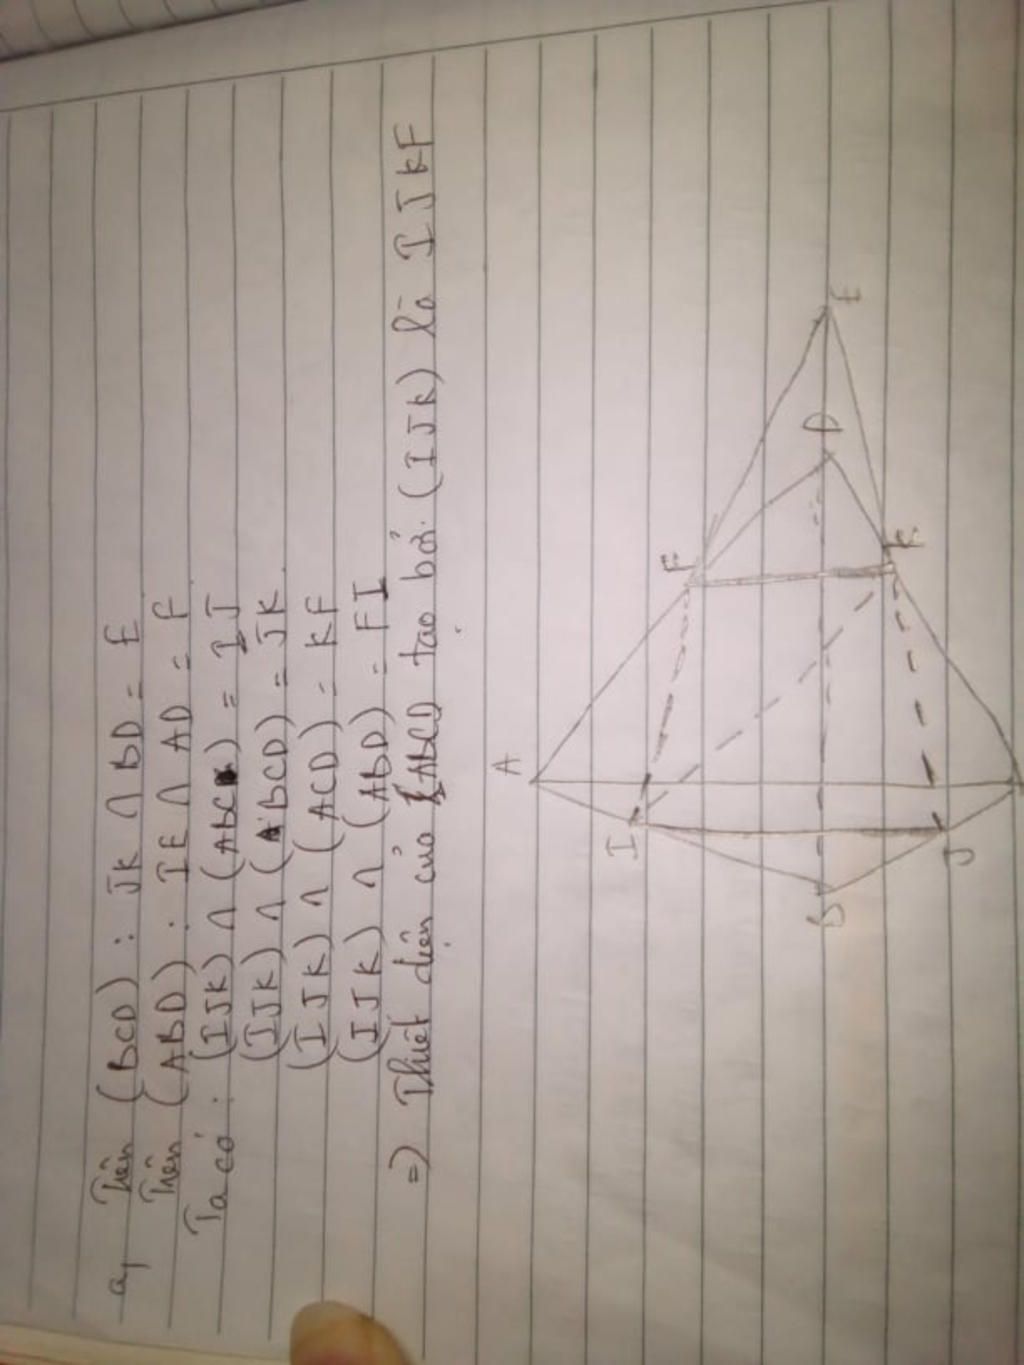 a, Trên (BCD) : JK ∩ BD = E
Trên (ABD) : IE ∩ AD = F
Ta có : (IJK) ∩ (ABC) = IJ
(IJK) ∩ (BCD) = JK
(IJK) ∩ (ACD) = KF
(IJK) ∩ (ABD) = FI
=) Thiết diện của ABCD tạo bởi (IJK) là IJKF
A
I
F
B
D
E
J
K